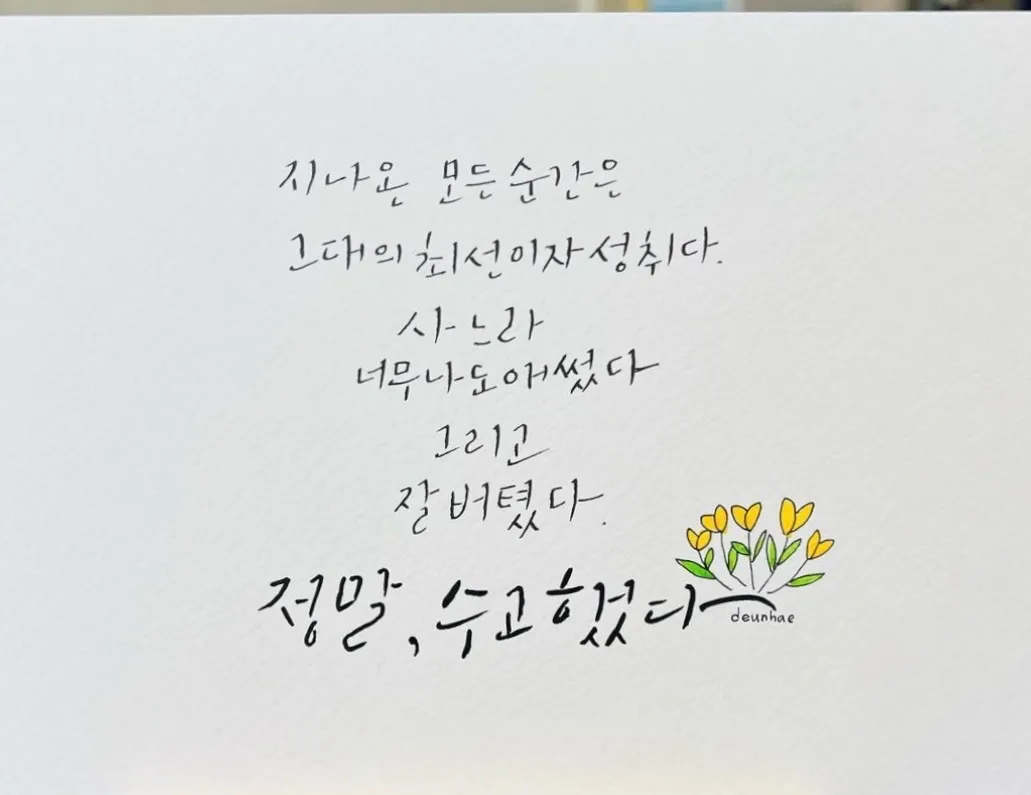 지나온 모든 순간은
그대의 최선이자 성취다.
사느라
너무나도 애썼다
그리고
잘 버텼다.
정말, 수고했다
deunhae